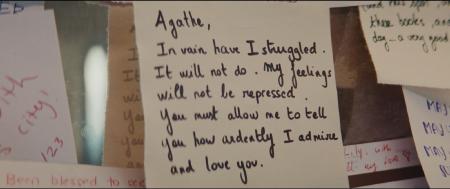 Agathe,
In vain have I struggled.
It will not do. My feelings
will not be repressed.
You must allow me to tell
you how ardently I admire
and love you.
these books, an
day... a very good
city!
123
Been blessed to see